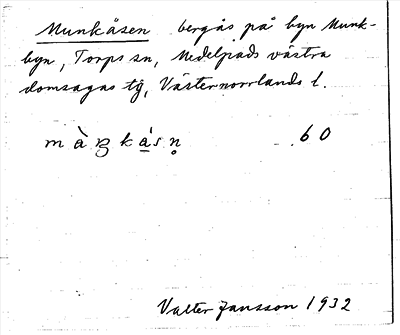 Munkåsen bergås på byn Munk-
byn, Torps sn, Medelpads västra
domsagas tg, Västernorrlands l.
60
Valter Jansson 1932